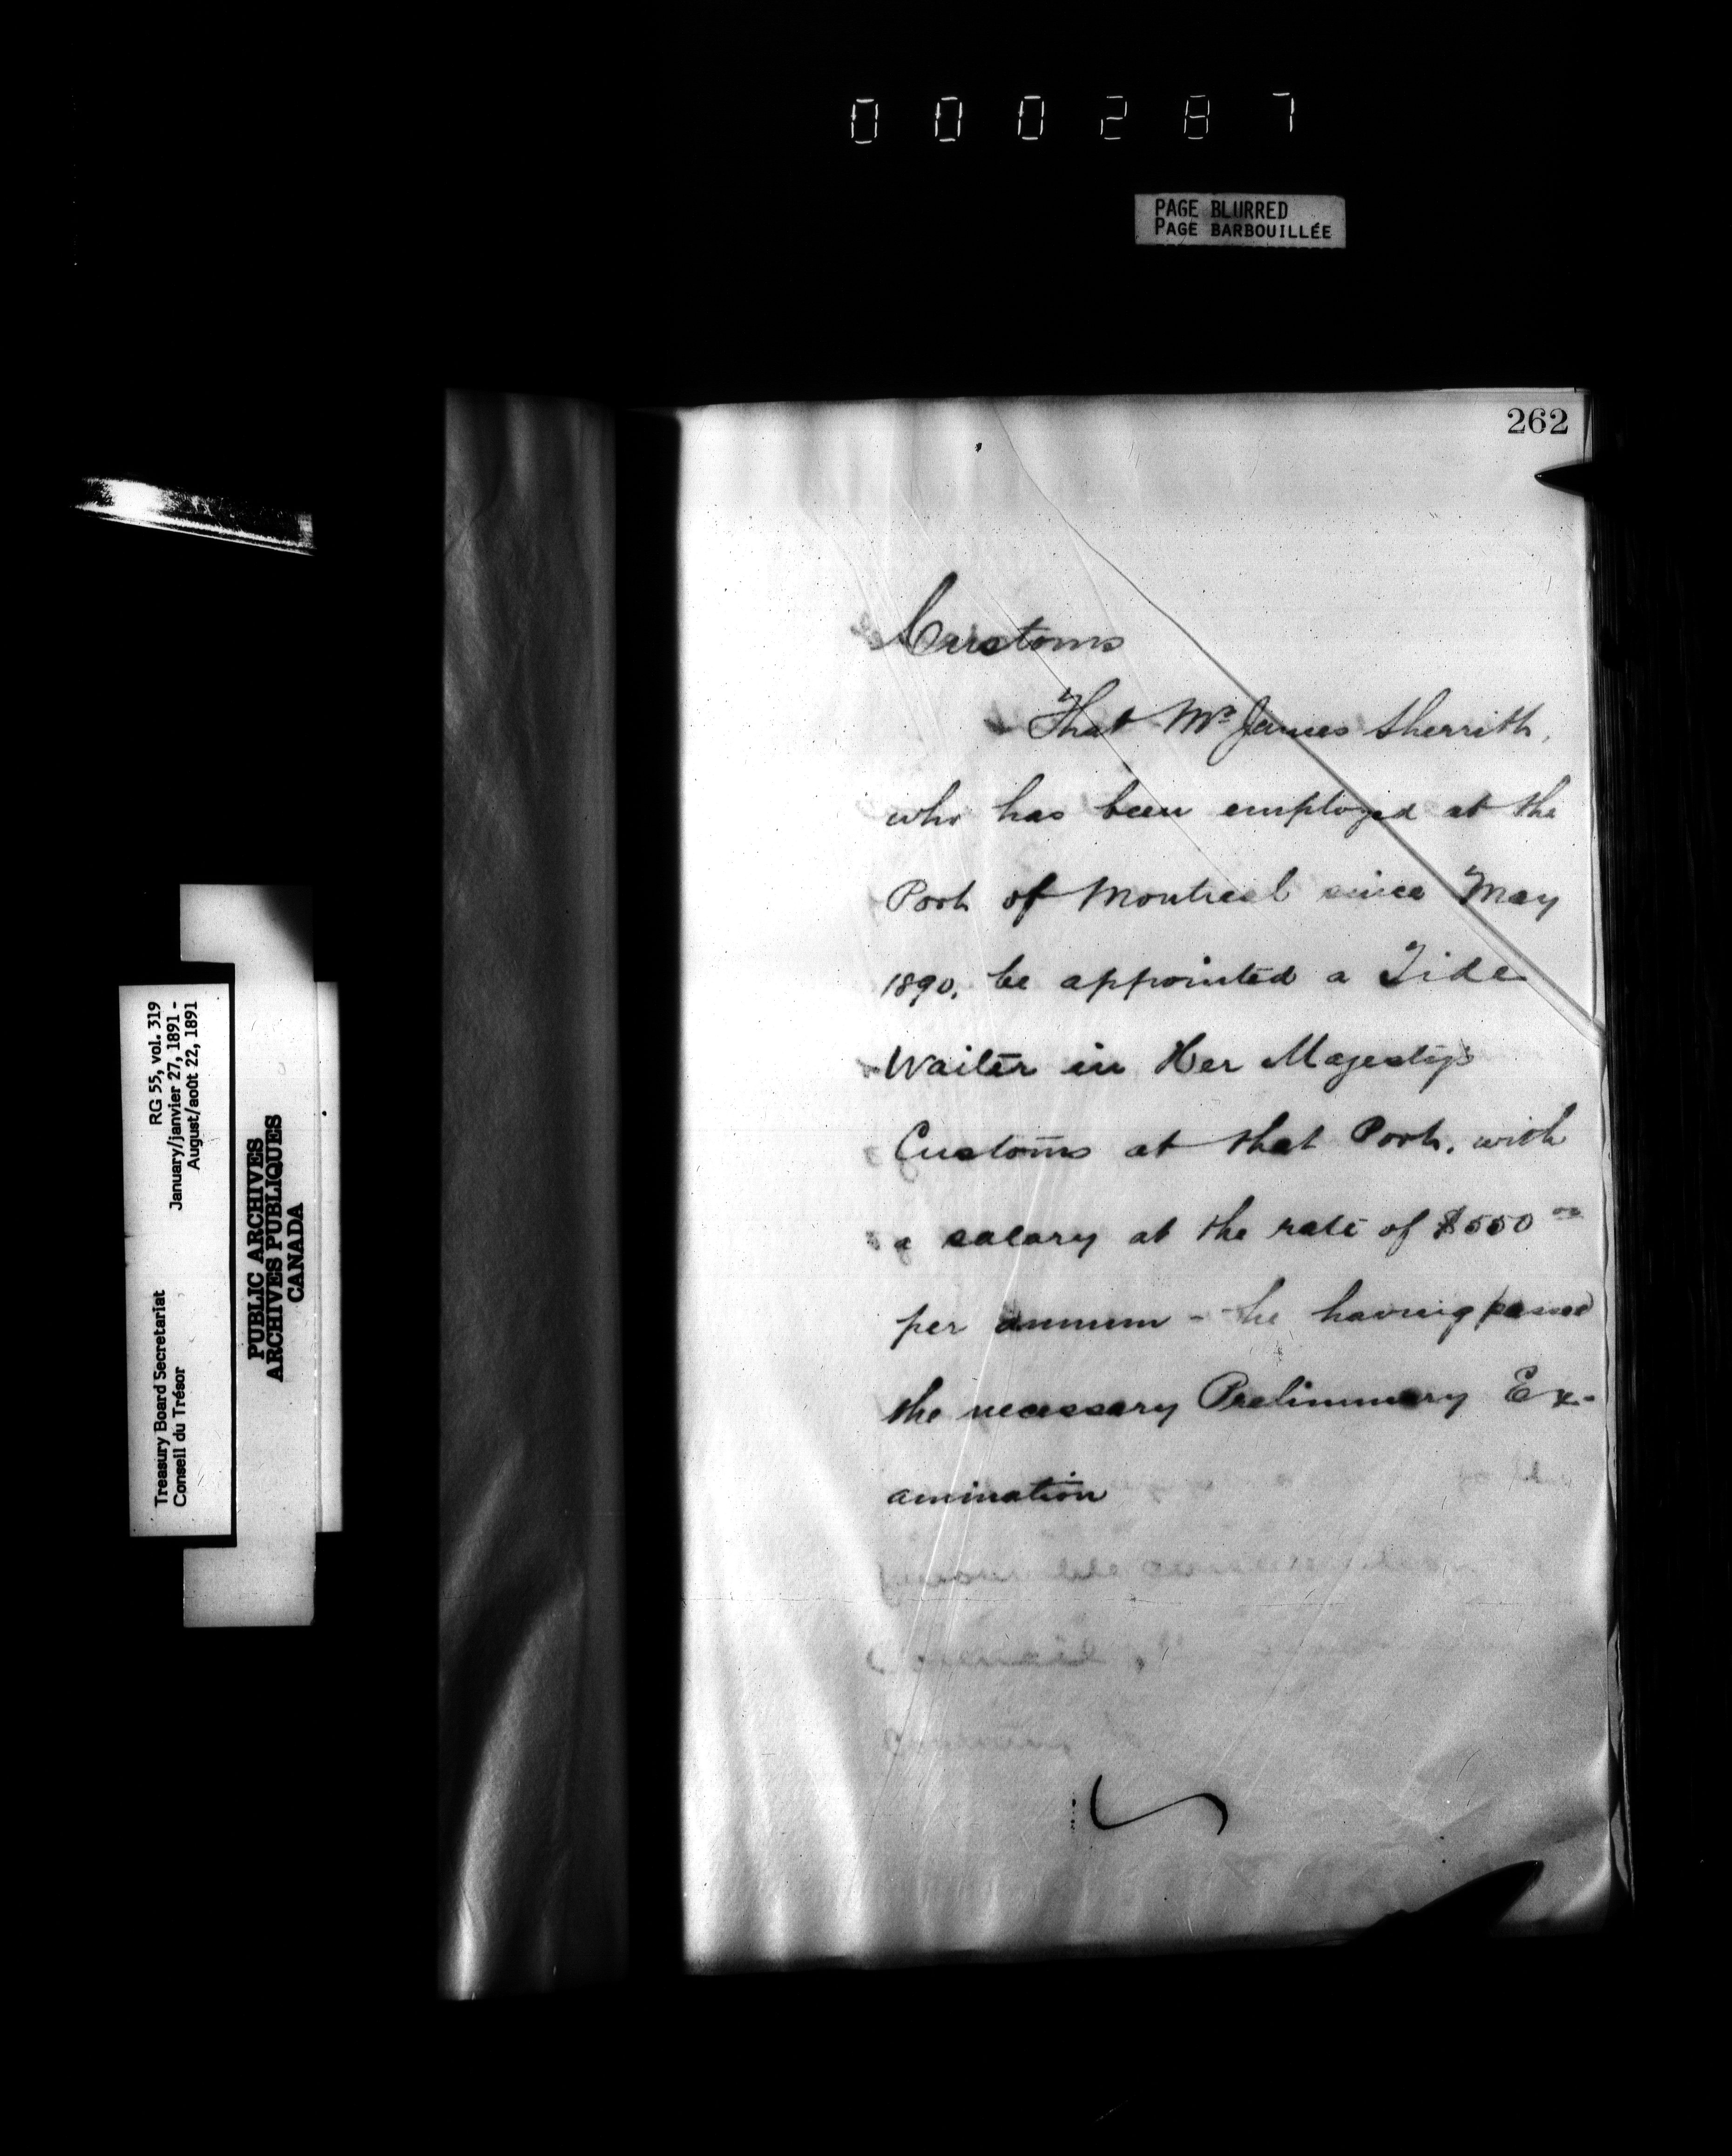 000287
PAGE BLURRED
PAGE BARBOUILLÉE
262
Customs
That Mr James Sherrith,
who has been employed at the
Port of Montreal since May
1890, be appointed a Tide
Waiter in Her Majesty's
Customs at that Port, with
a salary at the rate of $550 00
per annum - he having passed
the necessary Preliminary Ex-
amination
RG 55, vol. 319
January/janvier 27, 1891 -
August/août 22, 1891
Treasury Board Secretariat
Conseil du Trésor
PUBLIC ARCHIVES
ARCHIVES PUBLIQUES
CANADA